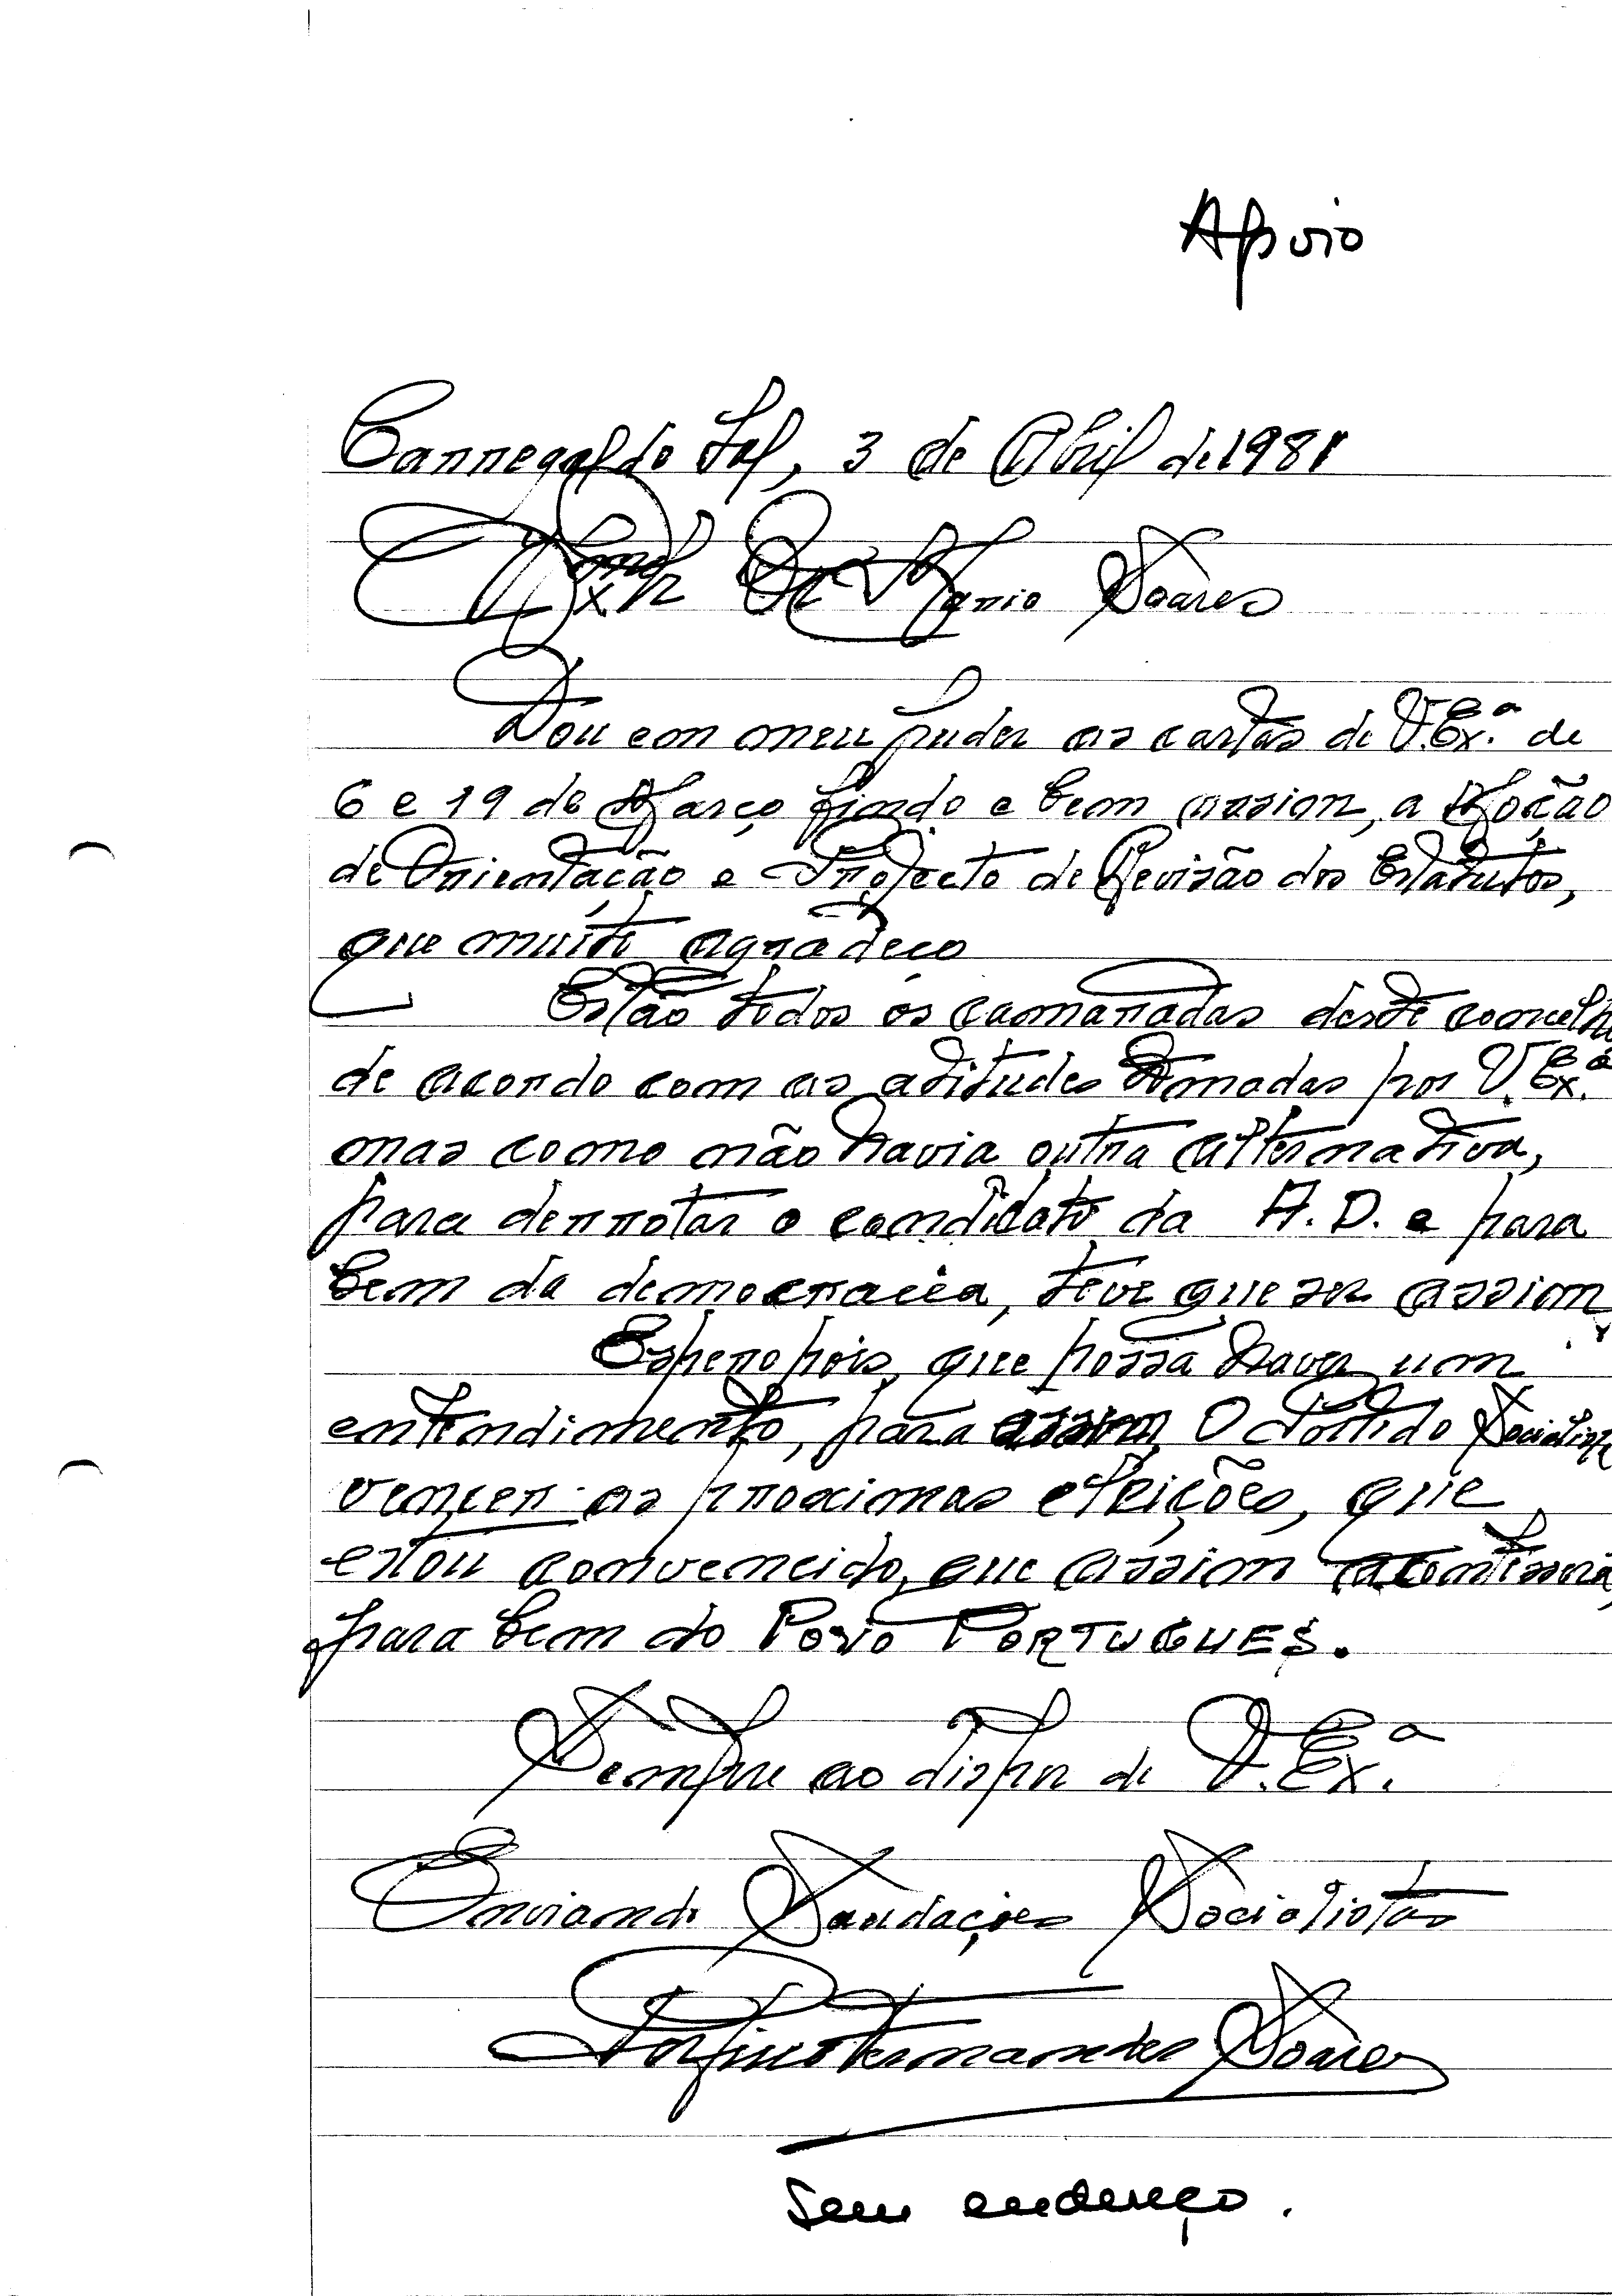 Apoio
Carregal do Sal, 3 de Abril de 1981
Exmº Sr Dr Mario Soares
Dou em meu puder as cartas de V. Exª. de
6 e 19 de Março findo e bem assim, a Moção
de Orientação e Projecto de Revisão dos Estatutos,
que muito agradeço
Estão todos os camaradas deste concelho
de acordo com as atitudes tomadas por V. Exª.
mas como não havia outra alternativa,
para derrotar o candidato da A.D. e para
bem da democracia, teve que ser assim
Espero pois, que possa haver um
entendimento, para assim, O Partido Socialista
vencer as proximas eleições, que
estou convencido, que assim
para bem do Povo PORTUGUES.
Sempre ao dispor de V. Exª.
Enviando Saudações Socialistas
Porfirio Fernandes Soares
Sem endereço.